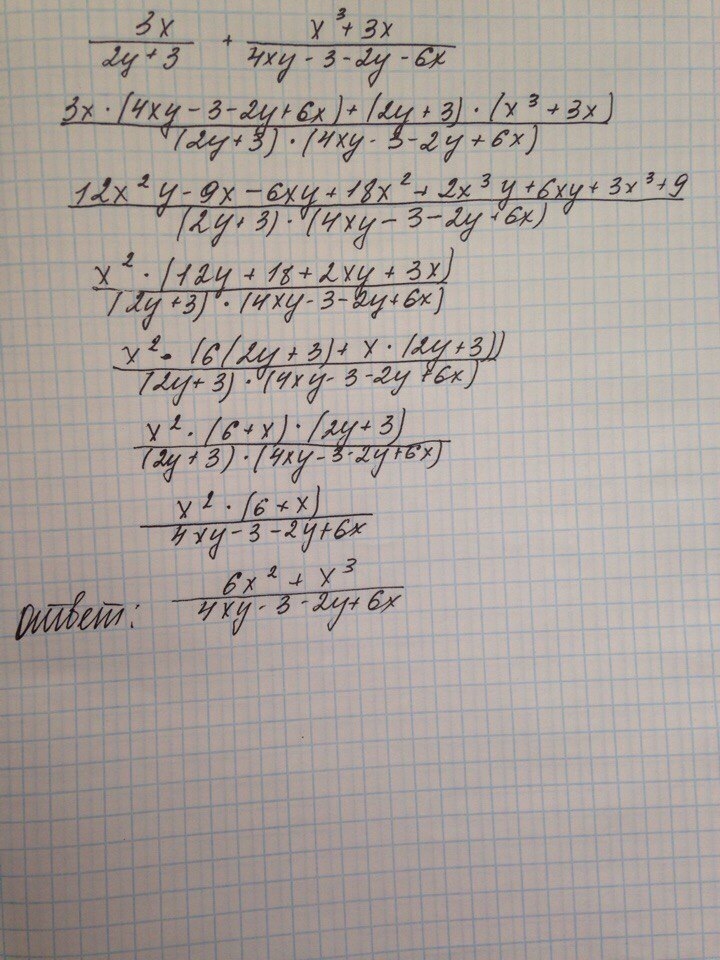 3x / 2y + 3 + x³ + 3x / 4xy - 3 - 2y - 6x
3x · (4xy - 3 - 2y + 6x) + (2y + 3) · (x³ + 3x) / (2y + 3) · (4xy - 3 - 2y + 6x)
12x²y - 9x - 6xy + 18x² + 2x³y + 6xy + 3x³ + 9 / (2y + 3) · (4xy - 3 - 2y + 6x)
x² · (12y + 18 + 2xy + 3x) / (2y + 3) · (4xy - 3 - 2y + 6x)
x² · (6(2y + 3) + x · (2y + 3)) / (2y + 3) · (4xy - 3 - 2y + 6x)
x² · (6 + x) · (2y + 3) / (2y + 3) · (4xy - 3 - 2y + 6x)
x² · (6 + x) / 4xy - 3 - 2y + 6x
ответ: 6x² + x³ / 4xy - 3 - 2y + 6x